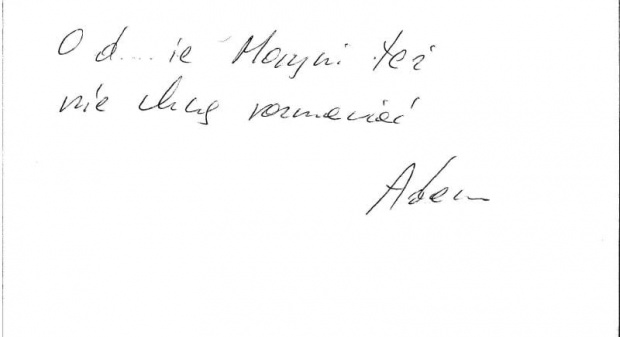 O d....ie Maryni też
nie chcę rozmawiać
Adam